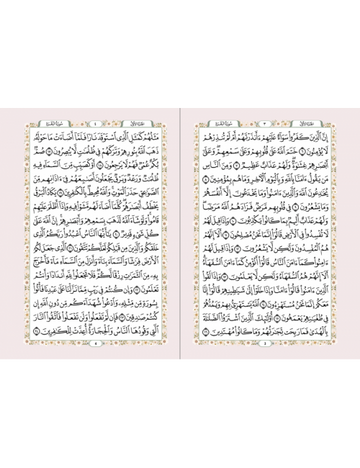 سورة البقرة
إِنَّ الَّذِينَ كَفَرُوا سَوَاءٌ عَلَيْهِمْ أَأَنذَرْتَهُمْ أَمْ لَمْ تُنذِرْهُمْ
لَا يُؤْمِنُونَ ٦ خَتَمَ اللَّهُ عَلَىٰ قُلُوبِهِمْ وَعَلَىٰ سَمْعِهِمْ وَعَلَىٰ
أَبْصَارِهِمْ غِشَاوَةٌ وَلَهُمْ عَذَابٌ عَظِيمٌ ٧ وَمِنَ النَّاسِ
مَن يَقُولُ آمَنَّا بِاللَّهِ وَبِالْيَوْمِ الْآخِرِ وَمَا هُم بِمُؤْمِنِينَ ٨
يُخَادِعُونَ اللَّهَ وَالَّذِينَ آمَنُوا وَمَا يَخْدَعُونَ إِلَّا أَنفُسَهُمْ
وَمَا يَشْعُرُونَ ٩ فِي قُلُوبِهِم مَّرَضٌ فَزَادَهُمُ اللَّهُ مَرَضًا
وَلَهُمْ عَذَابٌ أَلِيمٌ بِمَا كَانُوا يَكْذِبُونَ ١٠ وَإِذَا قِيلَ لَهُمْ
لَا تُفْسِدُوا فِي الْأَرْضِ قَالُوا إِنَّمَا نَحْنُ مُصْلِحُونَ ١١ أَلَا إِنَّهُمْ
هُمُ الْمُفْسِدُونَ وَلَٰكِن لَّا يَشْعُرُونَ ١٢ وَإِذَا قِيلَ لَهُمْ
آمِنُوا كَمَا آمَنَ النَّاسُ قَالُوا أَنُؤْمِنُ كَمَا آمَنَ السُّفَهَاءُ
أَلَا إِنَّهُمْ هُمُ السُّفَهَاءُ وَلَٰكِن لَّا يَعْلَمُونَ ١٣ وَإِذَا لَقُوا
الَّذِينَ آمَنُوا قَالُوا آمَنَّا وَإِذَا خَلَوْا إِلَىٰ شَيَاطِينِهِمْ قَالُوا إِنَّا
مَعَكُمْ إِنَّمَا نَحْنُ مُسْتَهْزِئُونَ ١٤ اللَّهُ يَسْتَهْزِئُ بِهِمْ وَيَمُدُّهُمْ
فِي طُغْيَانِهِمْ يَعْمَهُونَ ١٥ أُولَٰئِكَ الَّذِينَ اشْتَرَوُا الضَّلَالَةَ
بِالْهُدَىٰ فَمَا رَبِحَت تِّجَارَتُهُمْ وَمَا كَانُوا مُهْتَدِينَ ١٦
سورة البقرة
مَثَلُهُمْ كَمَثَلِ الَّذِي اسْتَوْقَدَ نَارًا فَلَمَّا أَضَاءَتْ مَا حَوْلَهُ
ذَهَبَ اللَّهُ بِنُورِهِمْ وَتَرَكَهُمْ فِي ظُلُمَاتٍ لَّا يُبْصِرُونَ ١٧ صُمٌّ
بُكْمٌ عُمْيٌ فَهُمْ لَا يَرْجِعُونَ ١٨ أَوْ كَصَيِّبٍ مِّنَ السَّمَاءِ فِيهِ
ظُلُمَاتٌ وَرَعْدٌ وَبَرْقٌ يَجْعَلُونَ أَصَابِعَهُمْ فِي آذَانِهِم مِّنَ
الصَّوَاعِقِ حَذَرَ الْمَوْتِ وَاللَّهُ مُحِيطٌ بِالْكَافِرِينَ ١٩ يَكَادُ الْبَرْقُ
يَخْطَفُ أَبْصَارَهُمْ كُلَّمَا أَضَاءَ لَهُم مَّشَوْا فِيهِ وَإِذَا أَظْلَمَ عَلَيْهِمْ
قَامُوا وَلَوْ شَاءَ اللَّهُ لَذَهَبَ بِسَمْعِهِمْ وَأَبْصَارِهِمْ إِنَّ اللَّهَ عَلَىٰ
كُلِّ شَيْءٍ قَدِيرٌ ٢٠ يَا أَيُّهَا النَّاسُ اعْبُدُوا رَبَّكُمُ الَّذِي
خَلَقَكُمْ وَالَّذِينَ مِن قَبْلِكُمْ لَعَلَّكُمْ تَتَّقُونَ ٢١ الَّذِي جَعَلَ لَكُمُ
الْأَرْضَ فِرَاشًا وَالسَّمَاءَ بِنَاءً وَأَنزَلَ مِنَ السَّمَاءِ مَاءً فَأَخْرَجَ
بِهِ مِنَ الثَّمَرَاتِ رِزْقًا لَّكُمْ فَلَا تَجْعَلُوا لِلَّهِ أَندَادًا وَأَنتُمْ
تَعْلَمُونَ ٢٢ وَإِن كُنتُمْ فِي رَيْبٍ مِّمَّا نَزَّلْنَا عَلَىٰ عَبْدِنَا فَأْتُوا
بِسُورَةٍ مِّن مِّثْلِهِ وَادْعُوا شُهَدَاءَكُم مِّن دُونِ اللَّهِ إِن
كُنتُمْ صَادِقِينَ ٢٣ فَإِن لَّمْ تَفْعَلُوا وَلَن تَفْعَلُوا فَاتَّقُوا النَّارَ
الَّتِي وَقُودُهَا النَّاسُ وَالْحِجَارَةُ أُعِدَّتْ لِلْكَافِرِينَ ٢٤